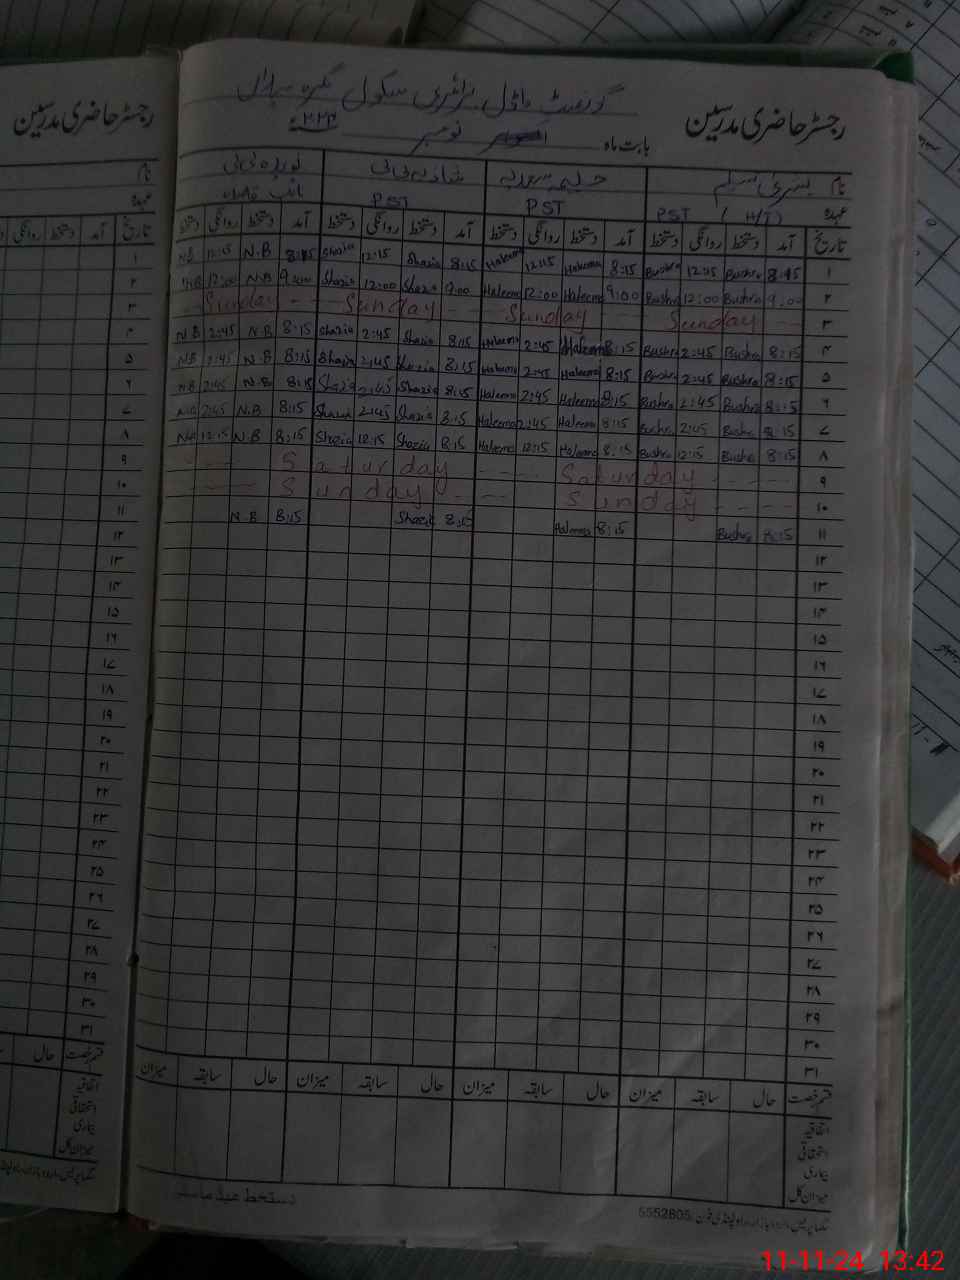 رجسٹر حاضری مدرسین
گورنمنٹ ماڈل پرائمری سکول
بابت ماہ نومبر ۲۰۲۴
نام بشریٰ سلیم حلیمہ سعدیہ شازیہ بی بی
عہدہ PST (H/T) PST PST نائب قاصد
تاریخ آمد دستخط روانگی دستخط آمد دستخط روانگی دستخط آمد دستخط روانگی دستخط آمد دستخط روانگی دستخط
۱ 8:45 Bushra 12:15 Bushra 8:15 Haleema 12:15 Haleema 8:15 Shazia 12:15 Shazia 8:15 N.B 12:15 N.B
۲ 9:00 Bushra 12:00 Bushra 9:00 Haleema 12:00 Haleema 9:00 Shazia 12:00 Shazia 9:00 N.B 12:00 N.B
۳ Sunday Sunday Sunday Sunday
۴ 8:15 Bushra 2:45 Bushra 8:15 Haleema 2:45 Haleema 8:15 Shazia 2:45 Shazia 8:15 N.B 2:45 N.B
۵ 8:15 Bushra 2:45 Bushra 8:15 Haleema 2:45 Haleema 8:15 Shazia 2:45 Shazia 8:15 N.B 2:45 N.B
۶ 8:15 Bushra 2:45 Bushra 8:15 Haleema 2:45 Haleema 8:15 Shazia 2:45 Shazia 8:15 N.B 2:45 N.B
۷ 8:15 Bushra 2:45 Bushra 8:15 Haleema 2:45 Haleema 8:15 Shazia 2:45 Shazia 8:15 N.B 2:45 N.B
۸ 8:15 Bushra 12:15 Bushra 8:15 Haleema 12:15 Haleema 8:15 Shazia 12:15 Shazia 8:15 N.B 12:15 N.B
۹ Saturday Saturday
۱۰ Sunday Sunday
۱۱ 8:15 Bushra 8:15 Haleema 8:15 Shazia 8:15 N.B
۱۲
۱۳
۱۴
۱۵
۱۶
۱۷
۱۸
۱۹
۲۰
۲۱
۲۲
۲۳
۲۴
۲۵
۲۶
۲۷
۲۸
۲۹
۳۰
۳۱
قسم رخصت حال سابقہ میزان حال سابقہ میزان حال سابقہ میزان حال سابقہ میزان
اتفاقیہ
استحقاقی
بیماری
میزان کل
دستخط ہیڈ ماسٹر
5552805
رجسٹر حاضری مدرسین
نام
عہدہ
تاریخ آمد دستخط روانگی
۱
۲
۳
۴
۵
۶
۷
۸
۹
۱۰
۱۱
۱۲
۱۳
۱۴
۱۵
۱۶
۱۷
۱۸
۱۹
۲۰
۲۱
۲۲
۲۳
۲۴
۲۵
۲۶
۲۷
۲۸
۲۹
۳۰
۳۱
قسم رخصت حال
اتفاقیہ
استحقاقی
بیماری
میزان کل
11-11-24 13:42